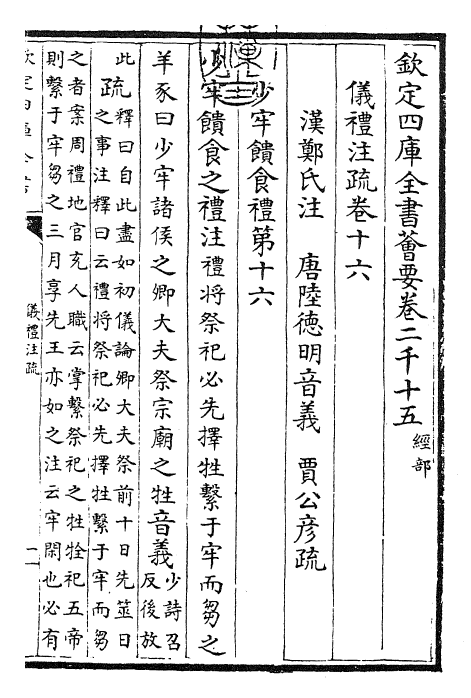 欽定四庫全書薈要卷二千十五 經部
儀禮注疏卷十六
漢鄭氏注 唐陸德明音義 賈公彦疏
少牢饋食禮第十六
少牢饋食之禮注禮将祭祀必先擇牲繫于牢而芻之
羊豕曰少牢諸侯之卿大夫祭宗廟之牲音義少詩召
反後放
此疏釋曰自此盡如初儀論卿大夫祭前十日先筮日
之事注釋曰云禮將祭祀必先擇牲繫于牢而芻
之者案周禮地官充人職云掌繫祭祀之牲牷祀五帝
則繫于牢芻之三月享先王亦如之注云牢閑也必有
欽定四庫全書
儀禮注疏
一